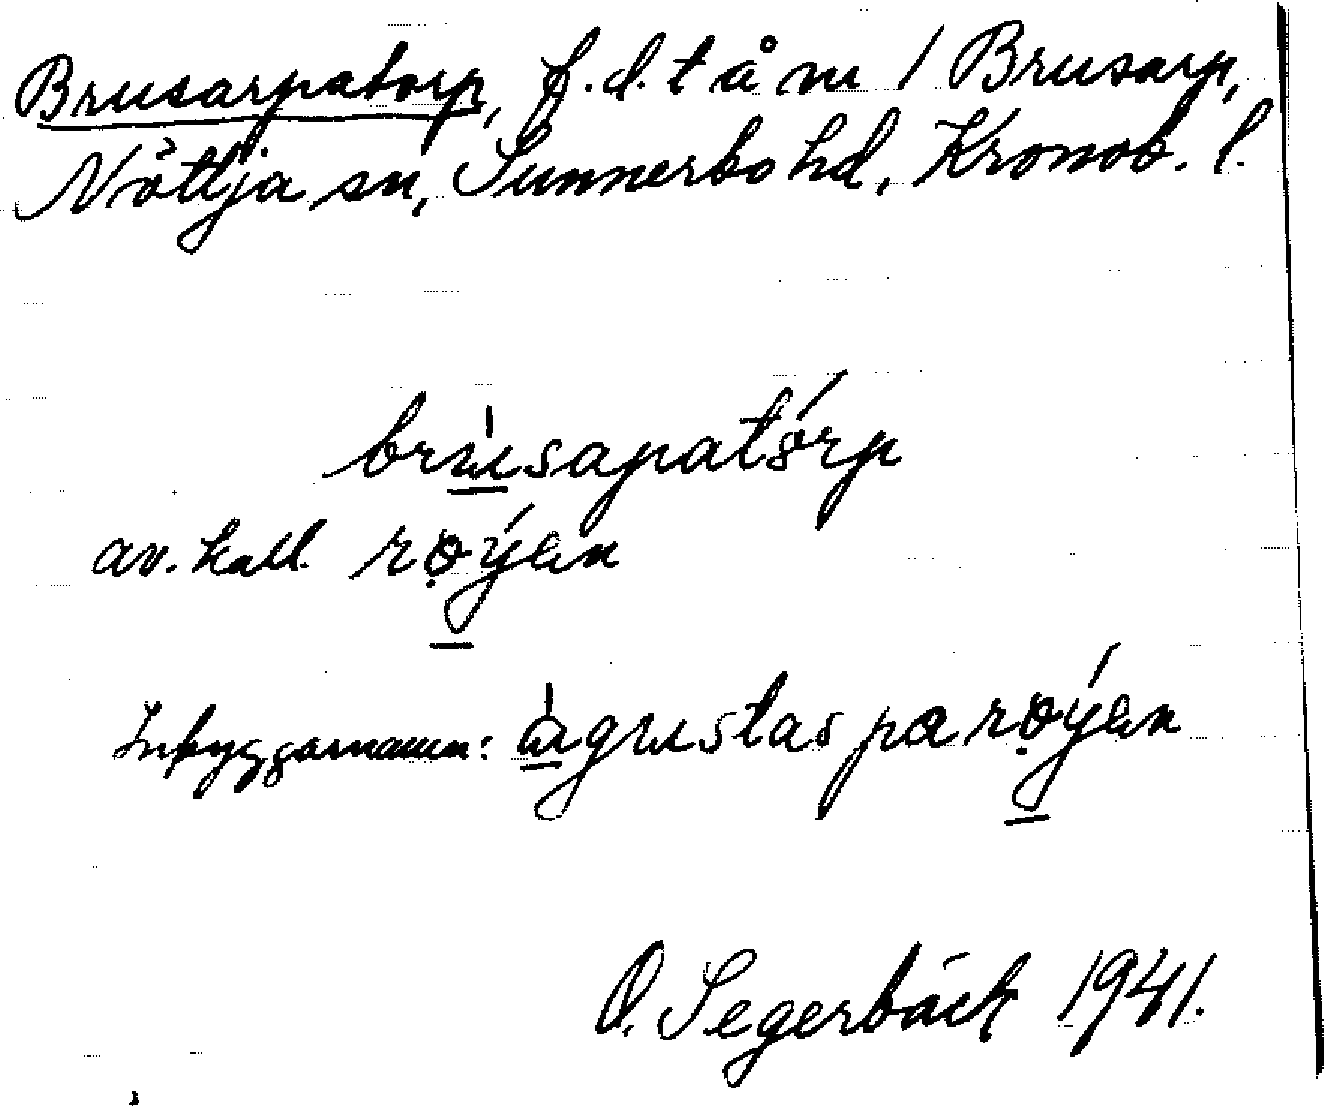 Brusarpatorp, f.d. t å m 1 Brusarp,
Nöttja sn, Sunnerbo hd, Kronob. l.
brúsapatórp
av. kall. rọýen
Inbyggarnamn: àgustas pa rọýen
O. Segerbäck 1941.